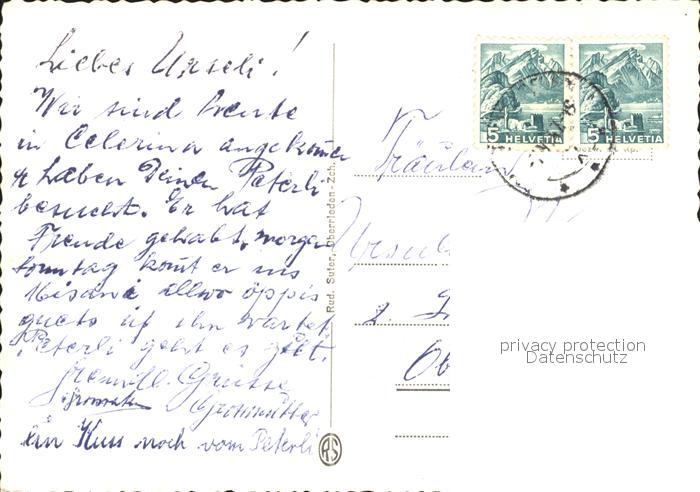 Liebes Urseli!
Wir sind heute
in Celerina angekommen
& haben Deinen Peterli
besucht. Er hat
Freude gehabt, morgen
Sonntag kommt er ins
allwo öppis
guets uf ihn wartet
Peterli geht es gut.
Freundl. Grüsse
Grossmutter
Ein Kuss noch vom Peterli
Rud. Suter, Oberrieden-Zch.
RS
5 HELVETIA
5 HELVETIA
Fräulein
Ursul
z.
Ob
privacy protection
Datenschutz